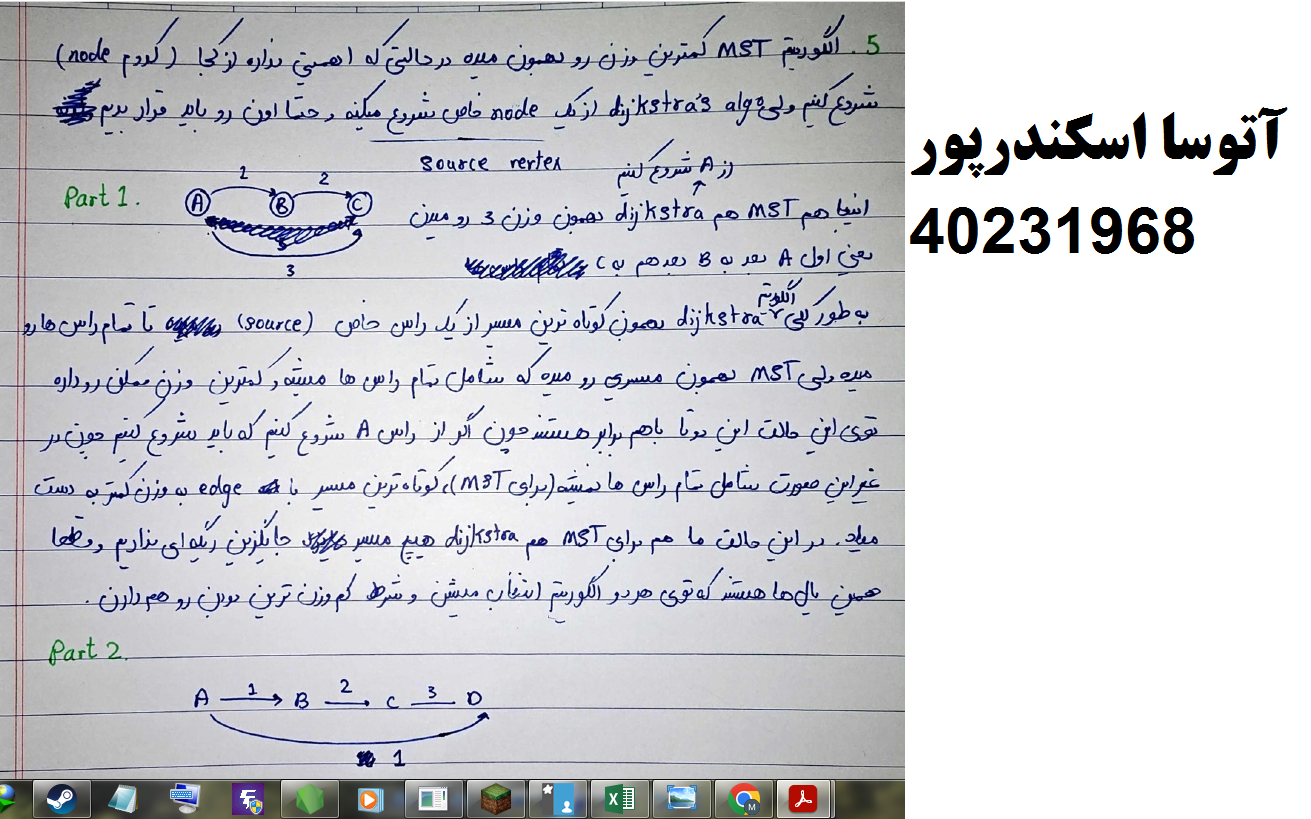 5. الگوریتم MST کمترین وزن رو بهمون میده در حالتی که اهمیتی نداره از کجا (کدوم node)
شروع کنیم ولی dijkstra's algo از یک node خاص شروع میکنه و حتما اون رو باید قرار بدیم
source vertex
از A شروع کنیم
Part 1.
1
2
A
B
C
3
اینجا هم MST هم dijkstra بهمون وزن 3 رو میدن
یعنی اول A بعد به B بعد هم به C
به طور کلی الگوریتم dijkstra بهمون کوتاه ترین مسیر از یک راس خاص (source) تا تمام راس ها رو
میده ولی MST بهمون مسیری رو میده که شامل تمام راس ها میشه و کمترین وزن ممکن رو داره
توی این حالت این دوتا باهم برابر هستند چون اگر از راس A شروع کنیم که باید شروع کنیم چون در
غیر این صورت شامل تمام راس ها نمیشه (برای MST)، کوتاه ترین مسیر با edge به وزن کمتر به دست
میاد. در این حالت ما هم برای MST هم dijkstra هیچ مسیر جایگزین دیگه ای نداریم و قطعا
همین یال ها هستند که توی هر دو الگوریتم انتخاب میشن و شرط کم وزن ترین بودن رو هم دارن.
Part 2.
A 1 B 2 C 3 D
1
آتوسا اسکندرپور
40231968